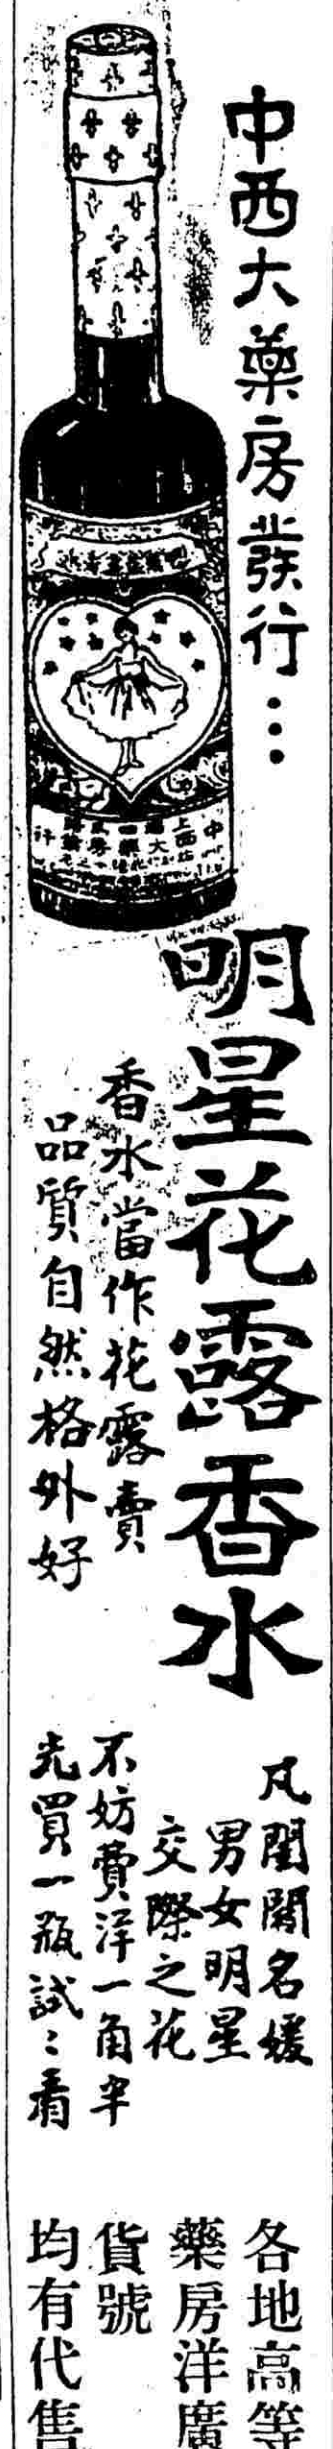 中西大藥房發行…
明星花露香水
香水當作花露賣
品質自然格外好
凡閨閣名媛
男女明星
交際之花
不妨費洋一角半
先買一瓶試〻看
各地高等
藥房洋廣
貨號
均有代售